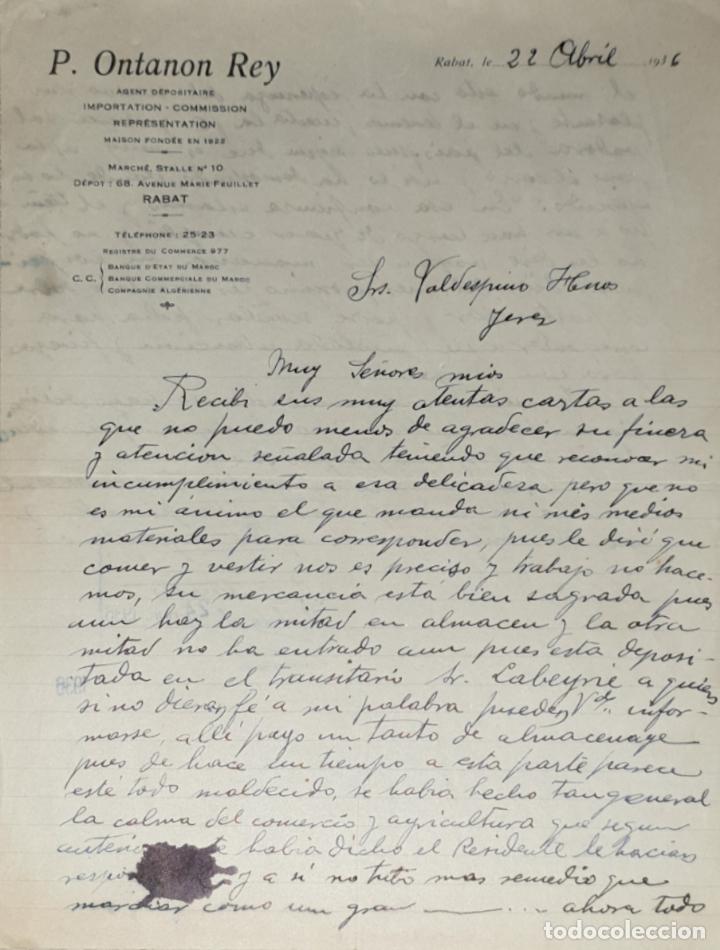 P. Ontanon Rey
Rabat, le 22 Abril 1936
AGENT DÉPOSITAIRE
IMPORTATION - COMMISSION
REPRÉSENTATION
MAISON FONDÉE EN 1922
MARCHÉ, STALLE N° 10
DÉPOT : 68, AVENUE MARIE-FEUILLET
RABAT
TÉLÉPHONE : 25-23
REGISTRE DU COMMERCE 977
C. C. BANQUE D'ETAT DU MAROC
BANQUE COMMERCIALE DU MAROC
COMPAGNIE ALGÉRIENNE
Srs. Valdespino Hnos
Jerez
Muy Señores mios
Recibi sus muy atentas cartas a las
que no puedo menos de agradecer su fineza
y atencion señalada teniendo que reconocer mi
incumplimiento a esa delicadeza pero que no
es mi ánimo el que manda ni mis medios
materiales para corresponder, pues le diré que
comer y vestir nos es preciso y trabajo no hace-
mos, su mercancia está bien sagrada pues
aun hay la mitad en almacen y la otra
mitad no ha entrado aun pues esta deposi-
tada en el transitario Sr. Labeyrie a quien
si no dieran fé a mi palabra pueden Vds. infor-
marse, alli pago un tanto de almacenage
pues de hace un tiempo a esta parte parece
esté todo maldecido, se habia hecho tan general
la calma del comercio y agricultura que segun
habia dicho el Residente le hacian
y a si no tubo mas remedio que
marchar como un gran ... ahora todo
todocoleccion